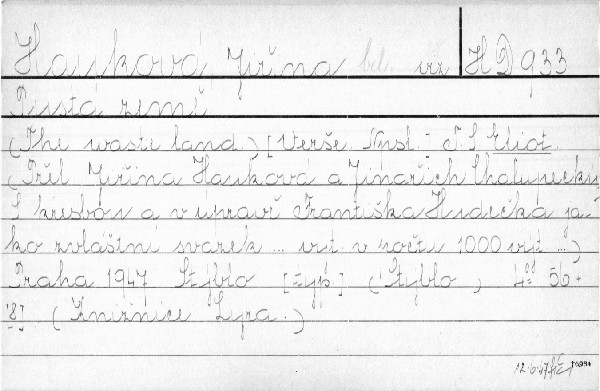 Hauková Jiřina bel. vz HD 933
Pustá země
(The waste land.) [Verše. Npsl.:] T. S. Eliot.
(Přel. Jiřina Hauková a Jindřich Chalupecký.
S kresbou a v úpravě Františka Hudečka ja-
ko zvláštní svazek ... vyt. v počtu 1000 výt ...)
Praha 1947 Stýblo [typ.] (Stýblo, 4° 56 +
'8] (Knižnice Lyra.)
12.6.47